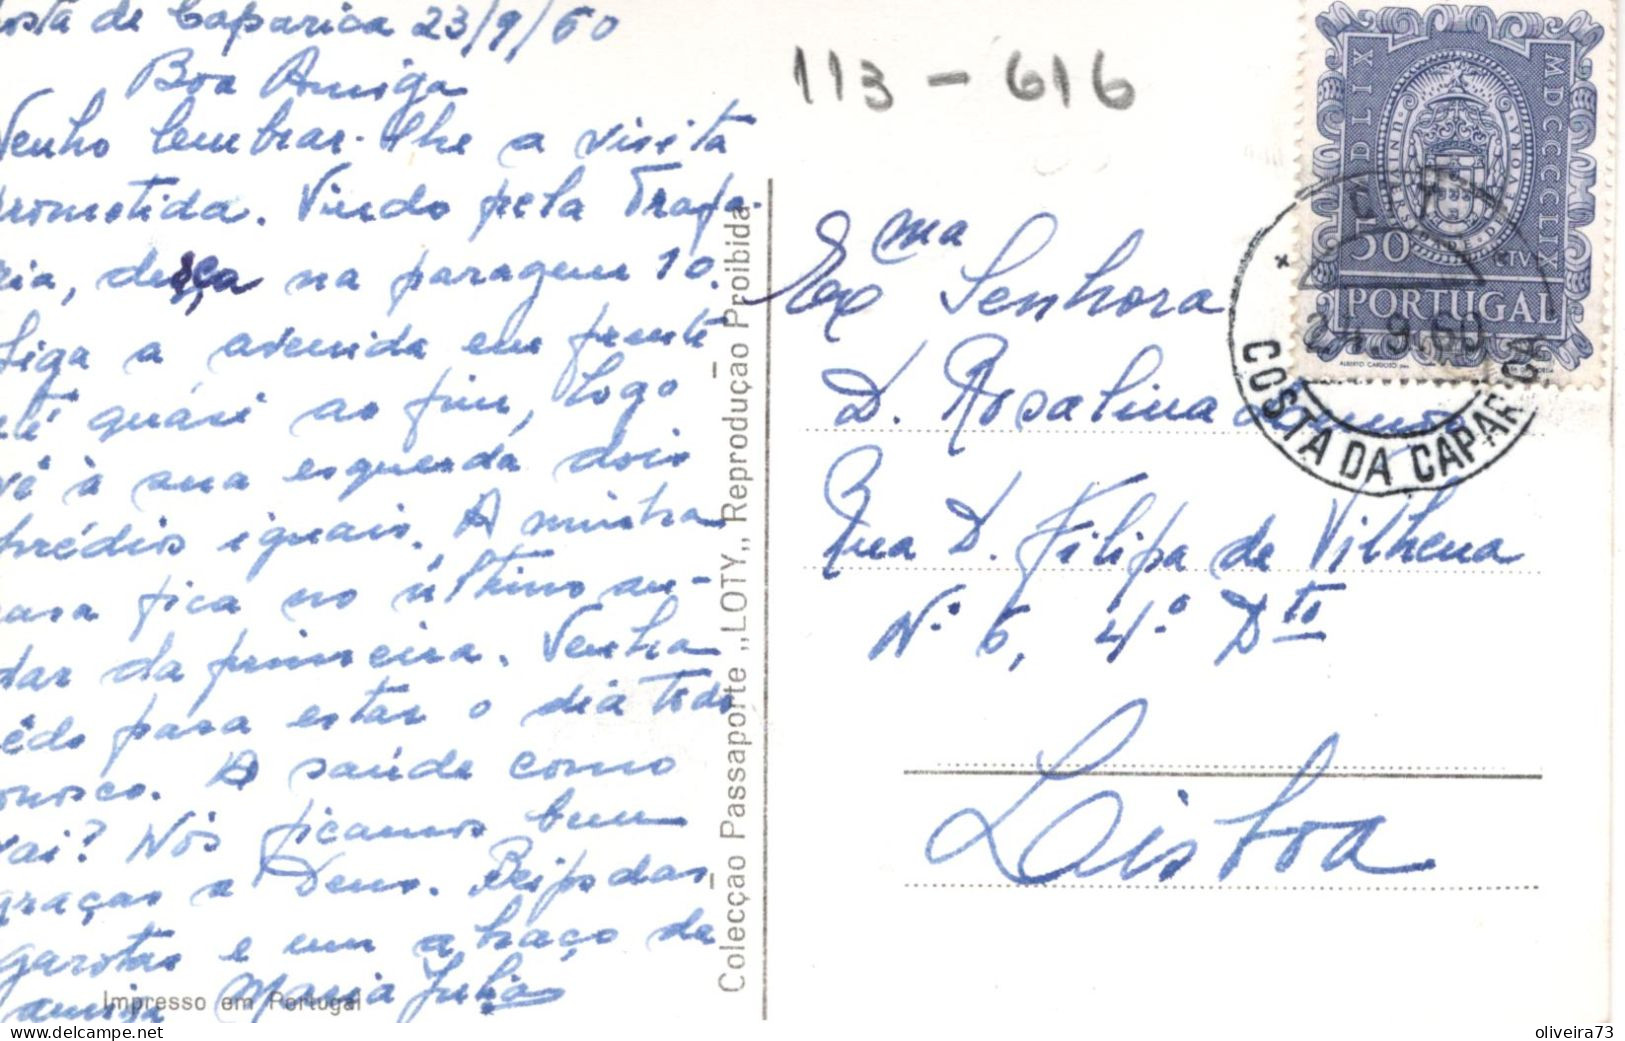 osta de Caparica 23/9/60
Boa Amiga
Venho lembrar-lhe a visita
prometida. Vindo pela Trafa-
ria, desça na paragem 10.
Siga a avenida em frente
até quási ao fim, Logo
vê à sua esquerda dois
prédios iguais. A minha
casa fica no último an-
dar da primeira. Venha
cêdo para estar o dia todo
onosco. A saúde como
vai? Nós ficamos bem
graças a Deus. Beijos das
garotas e um abraço da
amiga Maria Julia
Impresso em Portugal
Colecção Passaporte „LOTY„ Reprodução Proibida
113 - 616
DLIX MDCCCCLIX
50 CTVS
PORTUGAL
ALBERTO CARDOSO
CTT
24.9.60
COSTA DA CAPARICA
Exma Senhora
D. Rosalina
Rua D. Filipa de Vilhena
Nº 6, 4º Dto
Lisboa
oliveira73